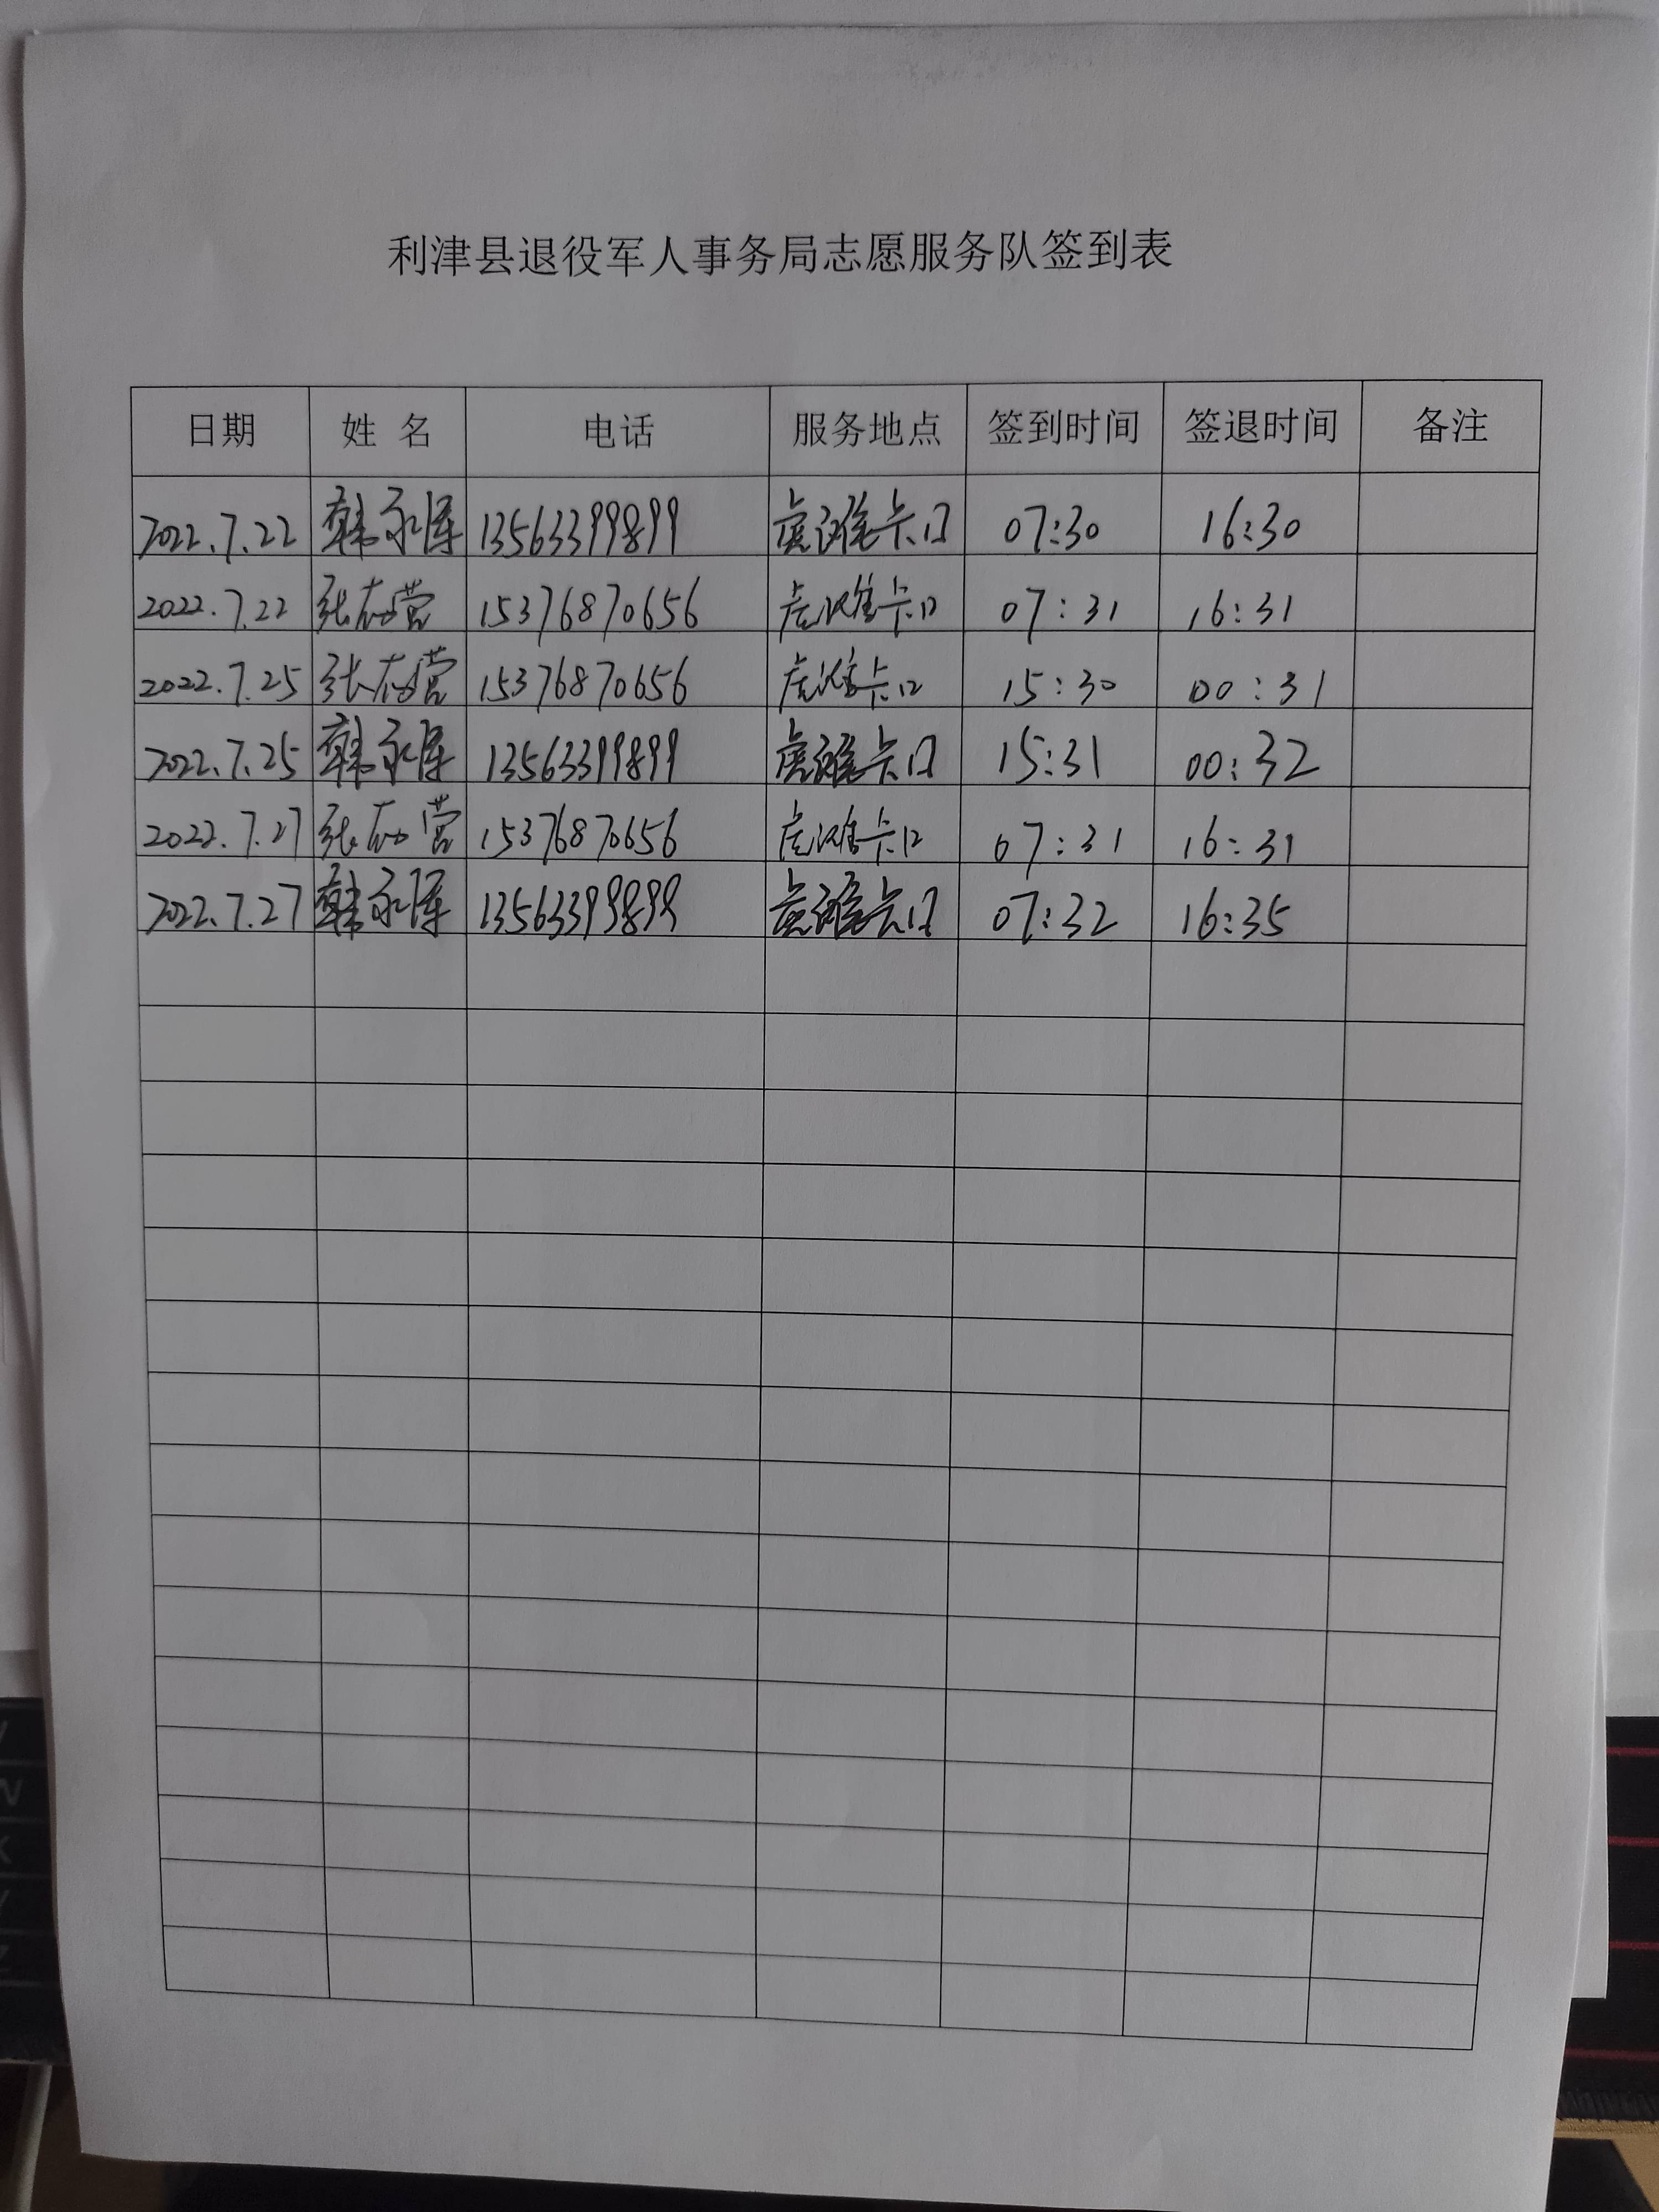 利津县退役军人事务局志愿服务队签到表
日期 姓 名 电话 服务地点 签到时间 签退时间 备注
2022.7.22 韩 13563399899 虎滩卡口 07:30 16:30
2022.7.22 张 营 15376870656 虎滩卡口 07:31 16:31
2022.7.25 张 营 15376870656 虎滩卡口 15:30 00:31
2022.7.25 韩 13563399899 虎滩卡口 15:31 00:32
2022.7.27 张 营 15376870656 虎滩卡口 07:31 16:31
2022.7.27 韩 13563399899 虎滩卡口 07:32 16:35